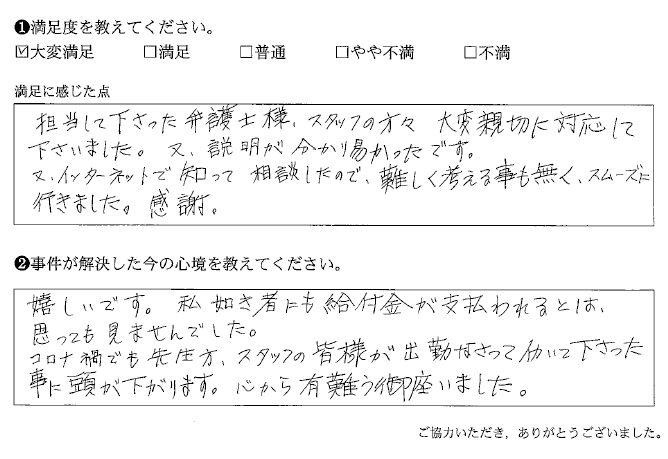 ❶満足度を教えてください。
☑大変満足 □満足 □普通 □やや不満 □不満
満足に感じた点
担当して下さった弁護士様、スタッフの方々 大変親切に対応して
下さいました。又、説明が分かり易かったです。
又、インターネットで知って相談したので、難しく考える事も無く、スムーズに
行きました。感謝。
❷事件が解決した今の心境を教えてください。
嬉しいです。私如き者にも給付金が支払われるとは、
思っても見ませんでした。
コロナ禍でも先生方、スタッフの皆様が出勤なさって働いて下さった
事に頭が下がります。心から有難う御座いました。
ご協力いただき，ありがとうございました。